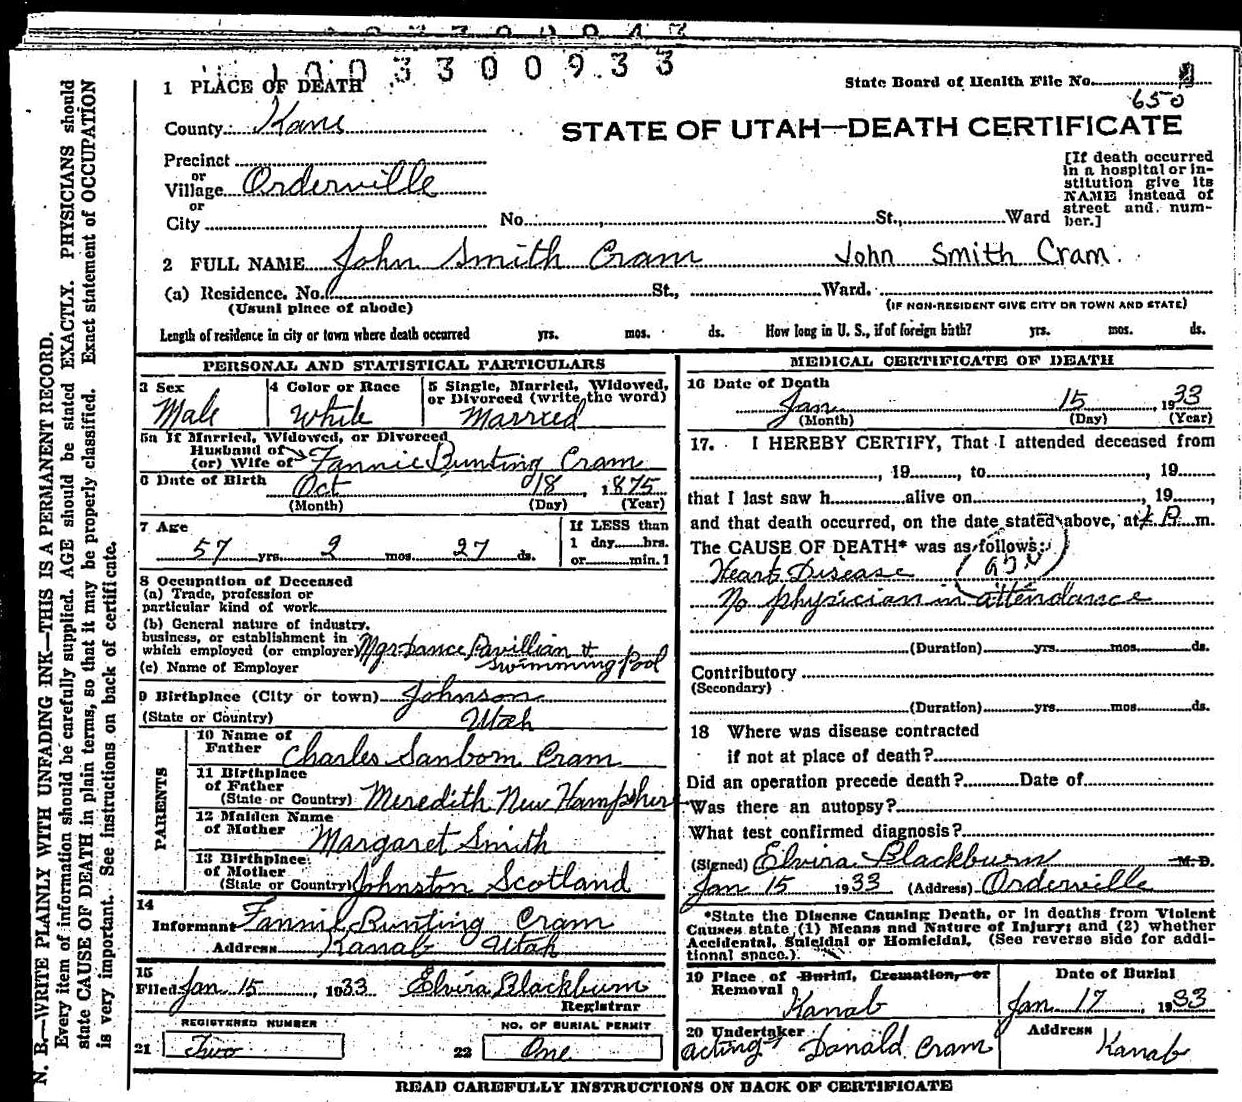 1003300933
1 PLACE OF DEATH
State Board of Health File No.
650
County Kane
STATE OF UTAH—DEATH CERTIFICATE
Precinct
or
Village Orderville
or
City
No. St., Ward
[If death occurred
in a hospital or in-
stitution give its
NAME instead of
street and num-
ber.]
2 FULL NAME John Smith Cram John Smith Cram.
(a) Residence. No. St., Ward.
(Usual place of abode)
(IF NON-RESIDENT GIVE CITY OR TOWN AND STATE)
Length of residence in city or town where death occurred yrs. mos. ds. How long in U. S., if of foreign birth? yrs. mos. ds.
PERSONAL AND STATISTICAL PARTICULARS
3 Sex
Male
4 Color or Race
White
5 Single, Married, Widowed,
or Divorced (write the word)
Married
5a If Married, Widowed, or Divorced
Husband of
(or) Wife of Fannie Bunting Cram
6 Date of Birth Oct 18, 1875
(Month) (Day) (Year)
7 Age
57 yrs. 2 mos. 27 ds.
If LESS than
1 day hrs.
or min. 1
8 Occupation of Deceased
(a) Trade, profession or
particular kind of work
(b) General nature of industry,
business, or establishment in
which employed (or employer) Mgr. Dance Pavillian &
Swimming Pool
(c) Name of Employer
9 Birthplace (City or town) Johnson
(State or Country) Utah
PARENTS
10 Name of
Father Charles Sanborn Cram
11 Birthplace
of Father
(State or Country) Meredith New Hampshire
12 Maiden Name
of Mother Margaret Smith
13 Birthplace
of Mother
(State or Country) Johnston Scotland
14
Informant Fannie Bunting Cram
Address Kanab Utah
15
Filed Jan 15, 1933 Elvira Blackburn
Registrar
REGISTERED NUMBER
21 Two
NO. OF BURIAL PERMIT
22 One
MEDICAL CERTIFICATE OF DEATH
16 Date of Death
Jan 15, 1933
(Month) (Day) (Year)
17. I HEREBY CERTIFY, That I attended deceased from
, 19 to , 19
that I last saw h alive on , 19 ,
and that death occurred, on the date stated above, at m.
The CAUSE OF DEATH* was as follows:
Heart Disease
No physician in attendance
(Duration) yrs. mos. ds.
Contributory
(Secondary)
(Duration) yrs. mos. ds.
18 Where was disease contracted
if not at place of death?
Did an operation precede death? Date of
Was there an autopsy?
What test confirmed diagnosis?
(Signed) Elvira Blackburn M.D.
Jan 15 1933 (Address) Orderville
*State the Disease Causing Death, or in deaths from Violent
Causes state (1) Means and Nature of Injury; and (2) whether
Accidental, Suicidal or Homicidal. (See reverse side for addi-
tional space.)
19 Place of Burial, Cremation, or
Removal Kanab
Date of Burial
Jan 17, 1933
20 Undertaker
acting Donald Cram
Address
Kanab
READ CAREFULLY INSTRUCTIONS ON BACK OF CERTIFICATE
N. B.—WRITE PLAINLY WITH UNFADING INK—THIS IS A PERMANENT RECORD.
Every item of information should be carefully supplied. AGE should be stated EXACTLY. PHYSICIANS should
state CAUSE OF DEATH in plain terms, so that it may be properly classified. Exact statement of OCCUPATION
is very important. See instructions on back of certificate.